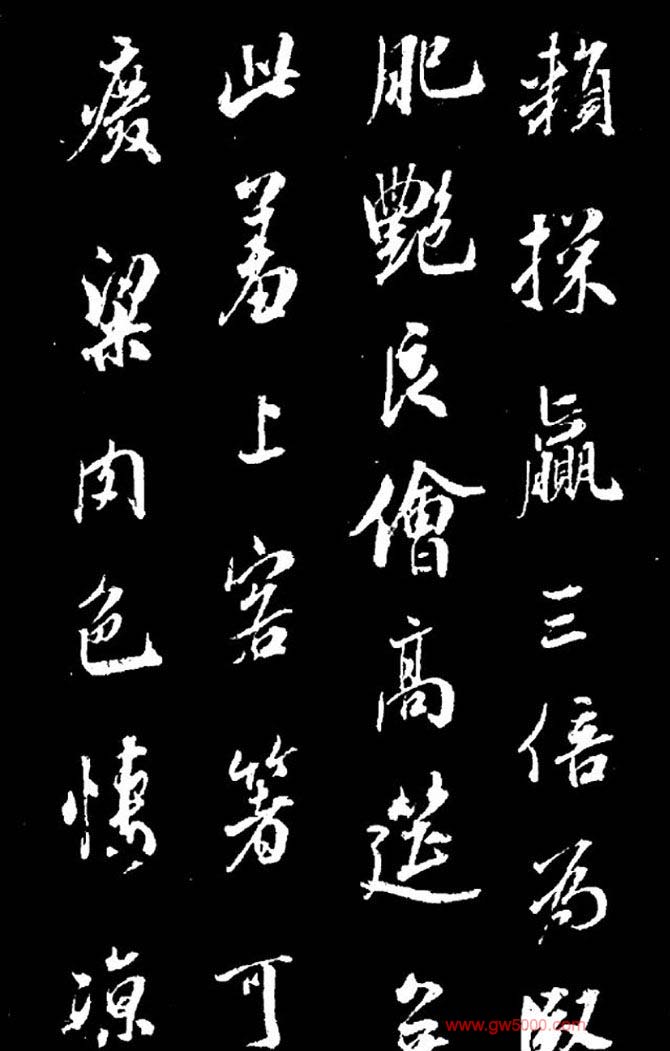 賴採贏三倍為
肥艷良儈高筵
此羞上客箸可
廢梁肉色悽凉
www.gw5000.com